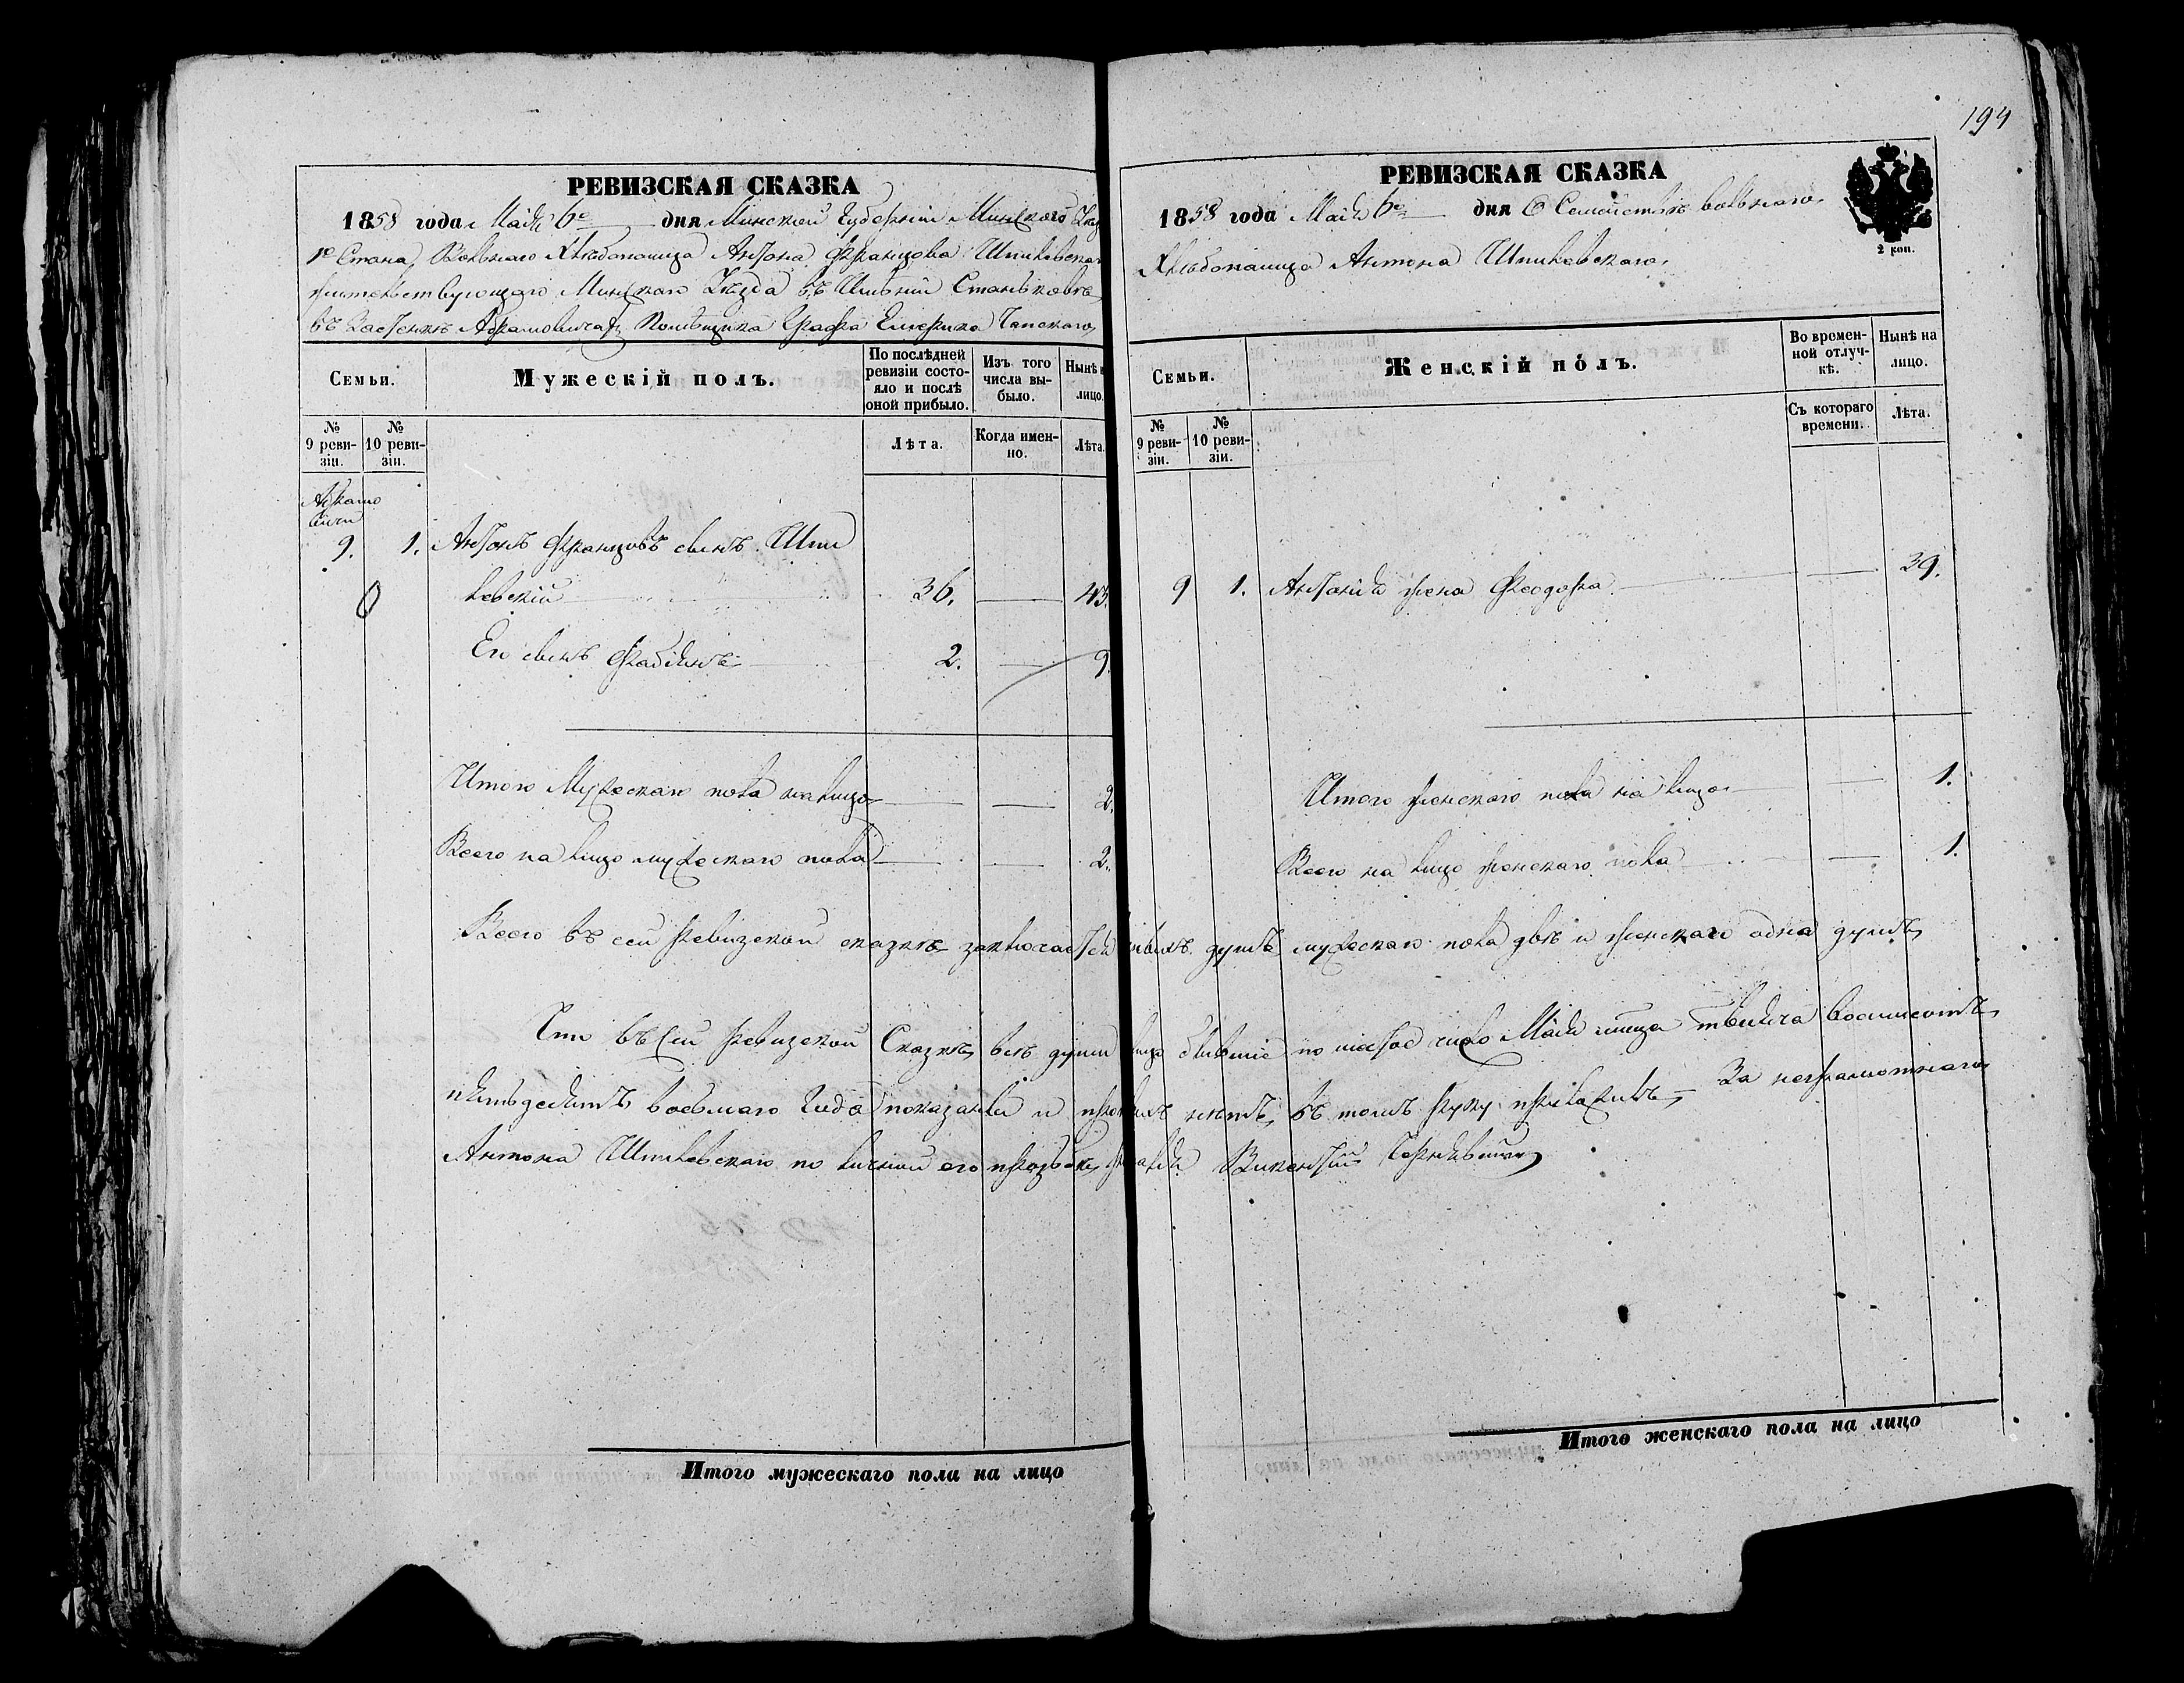 РЕВИЗСКАЯ СКАЗКА
1858 года Мая 6го дня Минской Губерніи Минского Уѣз
1го Стана, Вольнаго Хлѣбопашца Антона Францова Шпилевска
жительствующаго Минскаго Уѣзда въ Имѣніи Станьковѣ
въ Застенкѣ Абрамовичах Помѣщика Графа Емерика Чапскаго
Семьи.
Мужескій полъ.
По послѣдней ревизіи состояло и послѣ оной прибыло.
Изъ того числа выбыло.
Нынѣ н лицо.
№ 9 ревизіи.
№ 10 ревизіи.
Лѣта.
Когда именно.
Лѣта.
Абрамо
вичи
9. 1. Антонъ Францовъ сынъ Шпи
левскій 36. 45.
Его сынъ Фабіянъ 2. 9.
Итого Мужескаго пола на лицо 2.
Всего на лицо мужескаго пола 2.
Итого мужескаго пола на лицо
194
РЕВИЗСКАЯ СКАЗКА
2 коп.
1858 года Мая 6го дня О Семействѣ вольнаго
Хлѣбопашца Антона Шпилевскаго
Семьи.
Женскій полъ.
Во временной отлучкѣ.
Нынѣ на лицо.
№ 9 ревизіи.
№ 10 ревизіи.
Съ котораго времени.
Лѣта.
9 1. Антонія жена Феодора 39.
Итого женскаго пола на лицо 1.
Всего на лицо женскаго пола 1.
Всего въ сей ревизской сказкѣ заключается душъ мужескаго пола двѣ и женскаго одна душъ
Что въ сей ревизской Сказкѣ всѣ души лицо бывшіе по шестое число Мая мѣсяца тысяча восемсотъ
пятьдесятъ восьмаго года показаны и нѣтъ, въ томъ руку приложилъ, За неграмотнаго
Антона Шпилевскаго по личной его прозьбѣ Викентій
Итого женскаго пола на лицо